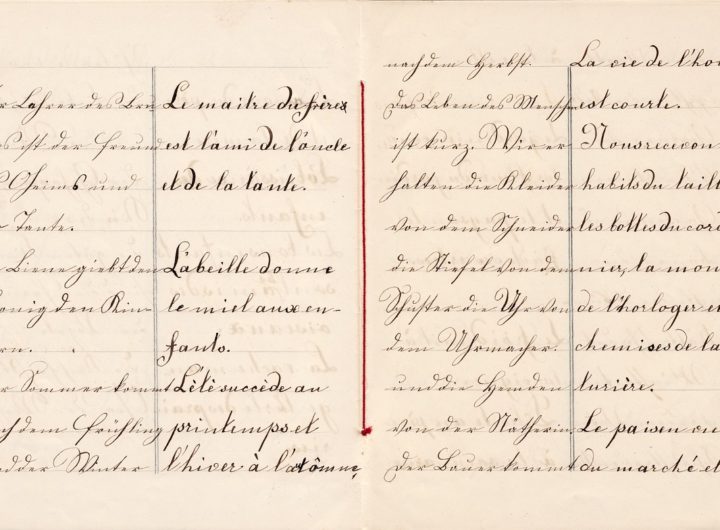 r Lehrer des Bru
s ist der Freund
s Oheims und
r Tante.
Biene giebt den
onig den Kin-
ern.
r Sommer kommt
ch dem Frühling
d der Winter
Le maitre du frère
est l'ami de l'oncle
et de la tante.
L'abeille donne
le miel aux en-
fants.
L'été succède au
printemps et
l'hiver à l'atômne,
nach dem Herbst.
Das Leben des Menschen
ist kurz. Wir er
halten die Kleider
von dem Schneider
die Stiefel von dem
Schuster die Uhr von
dem Uhrmacher.
und die Hemden
von der Nätherin.
Der Bauer kommt
La vie de l'hom
est courte.
Nous recevon
habits du taill
les bottes du cord
nier, la mon
de l'horloger et
chemises de la
turière.
Le paisen
du marché et